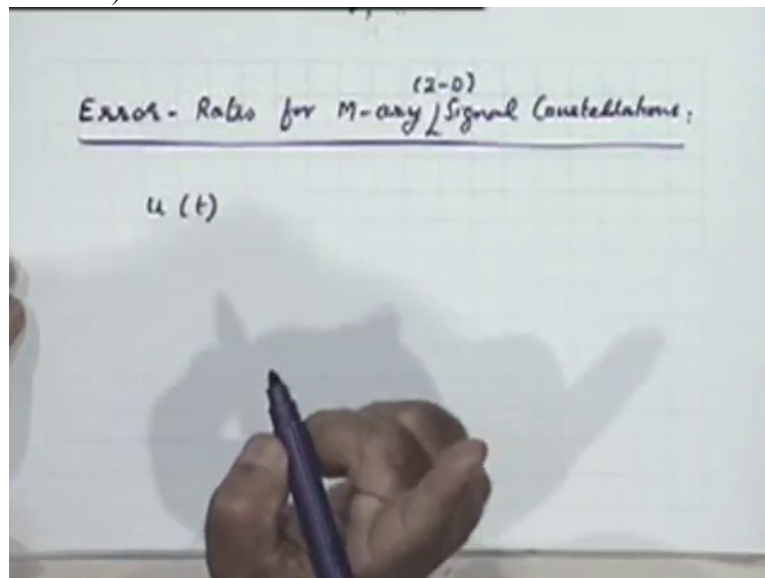 (2-D)
Error-Rates for M-ary Signal Constellations:
u (t)